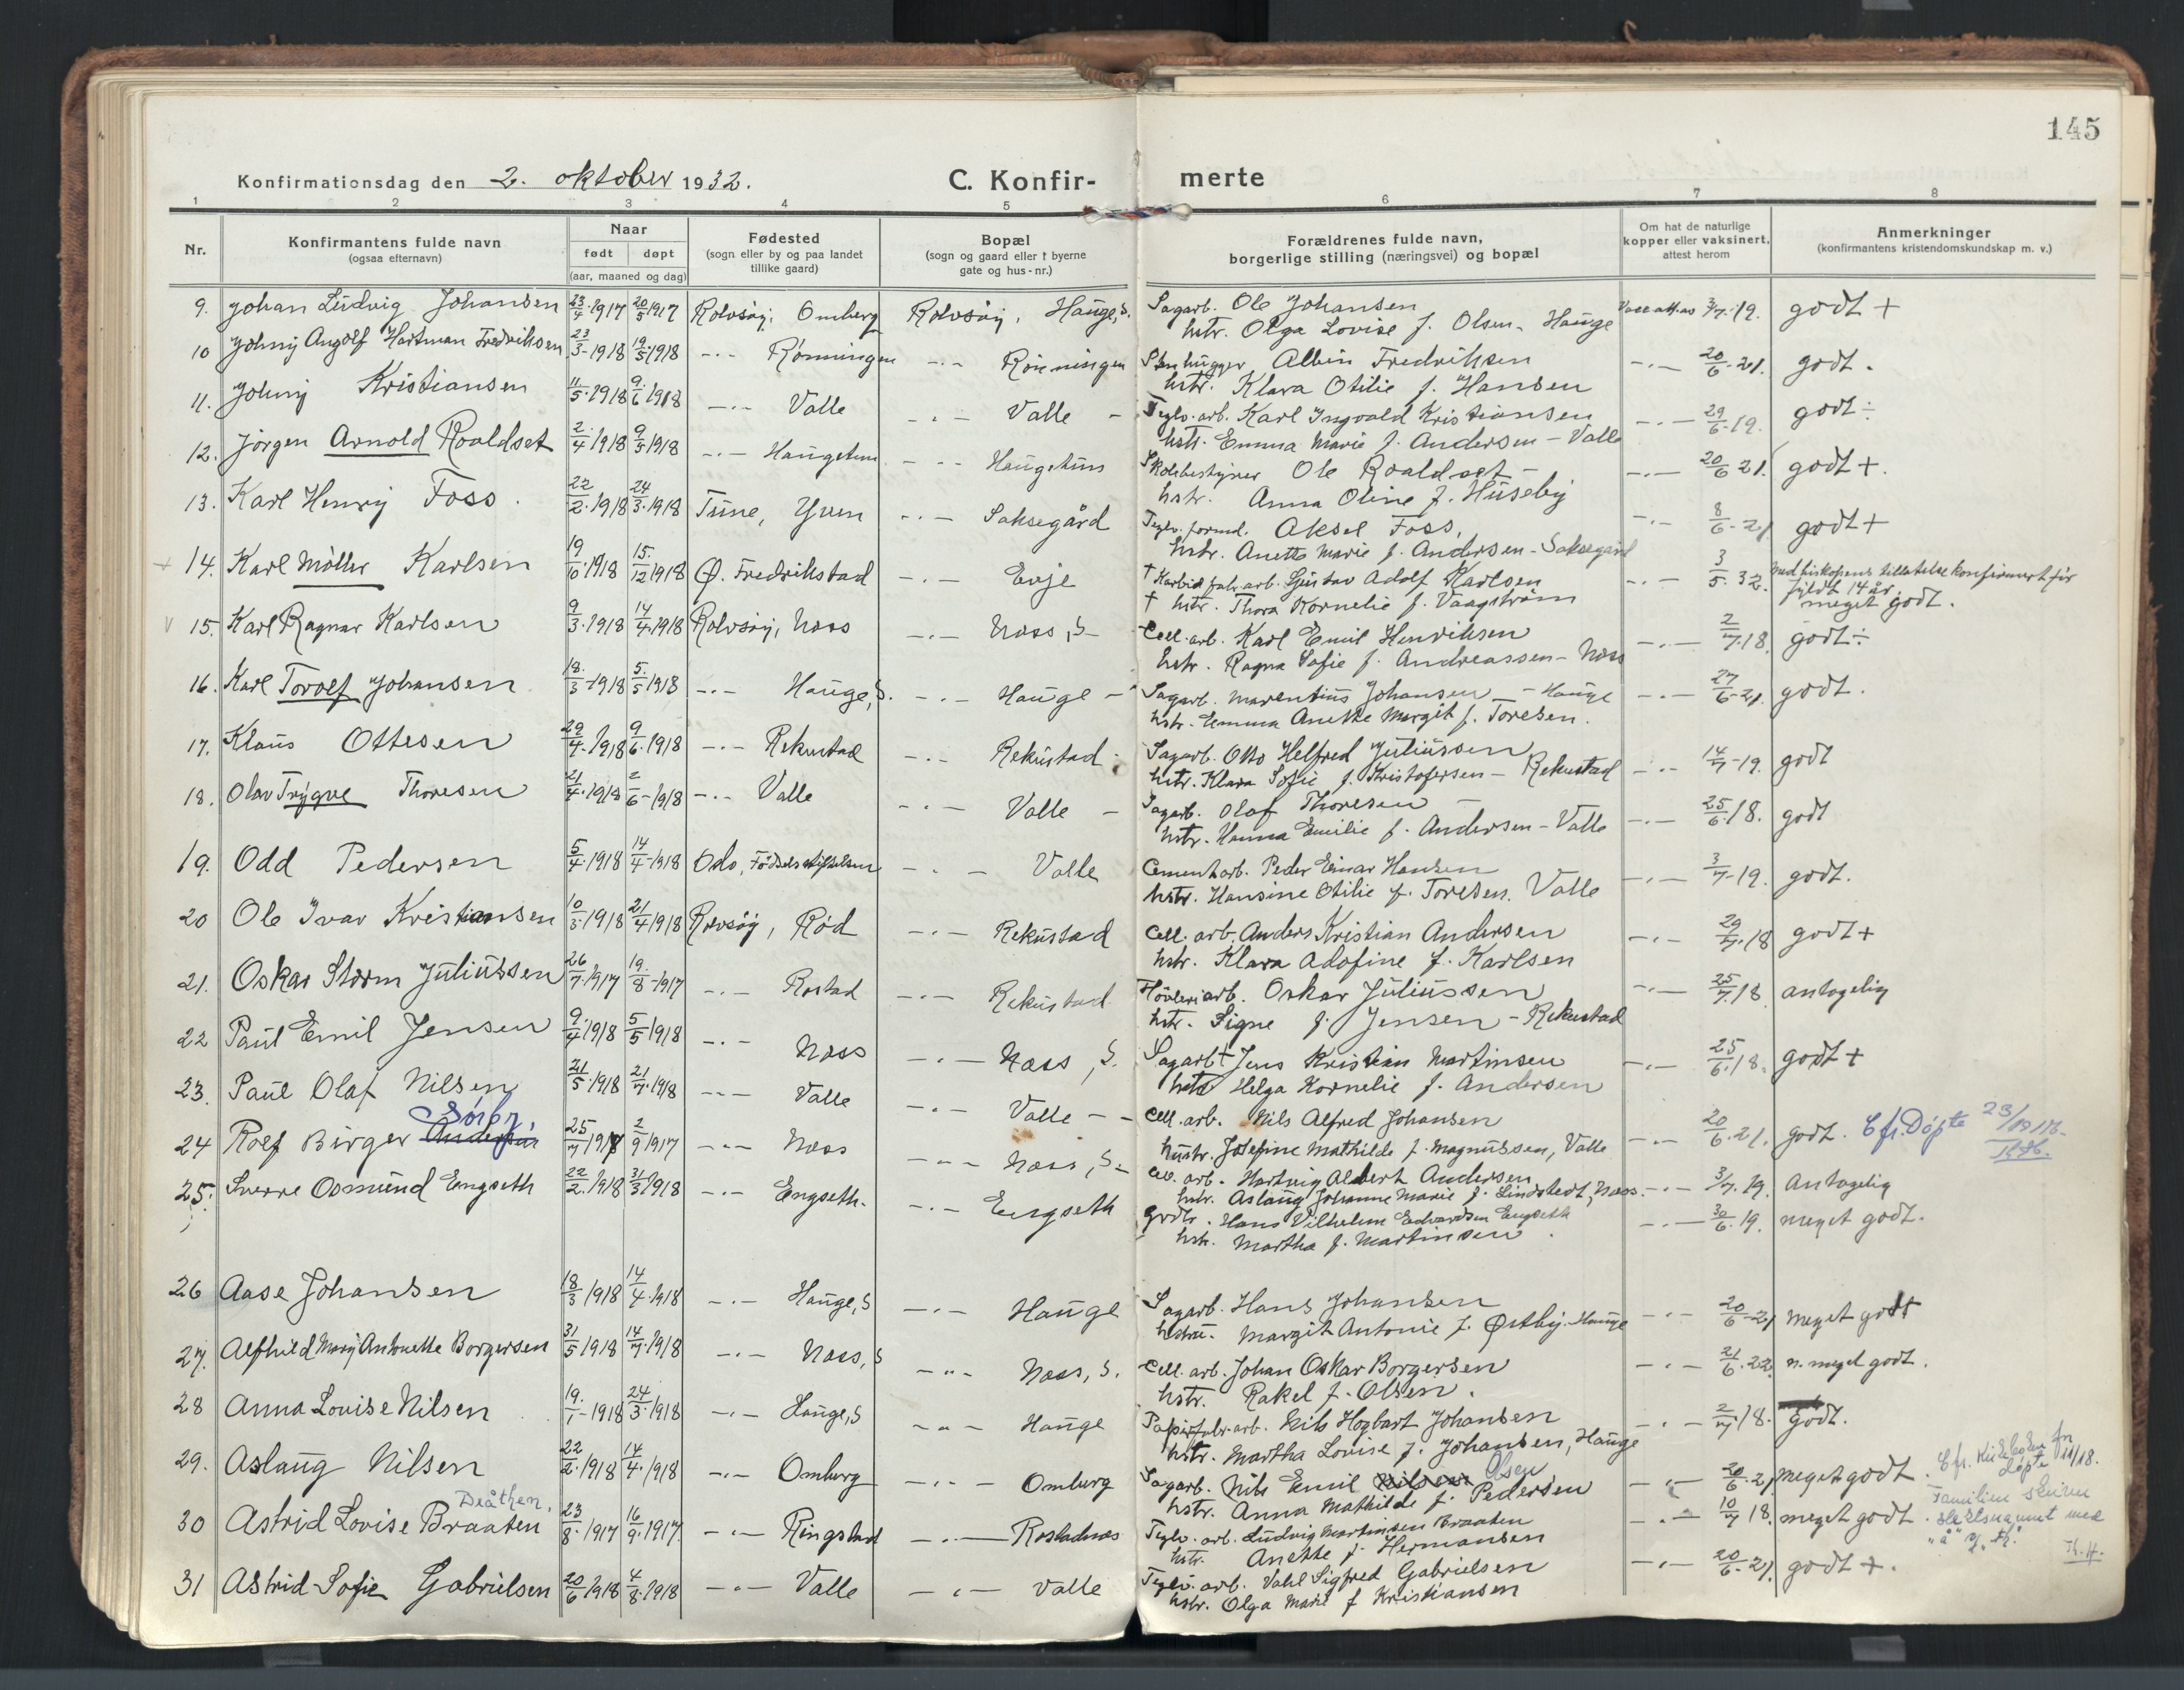 145
Konfirmationsdag den 2. oktober 1932. C. Konfir- merte
1 2 3 4 5 6 7 8
Nr. Konfirmantens fulde navn (ogsaa efternavn) Naar født døpt (aar, maaned og dag) Fødested (sogn eller by og paa landet tillike gaard) Bopæl (sogn og gaard eller i byerne gate og hus-nr.) Forældrenes fulde navn, borgerlige stilling (næringsvei) og bopæl Om hat de naturlige kopper eller vaksinert, attest herom Anmerkninger (konfirmantens kristendomskundskap m. v.)
9. Johan Ludvig Johansen 23/4 1917 20/5 1917 Rolvsøy, Omberg Rolvsøy, Hauge, S. Sagarb. Ole Johansen 3/7 19. godt +
hstr. Olga Lovise f. Olsen - Hauge
10 Johny Angolf Hartman Fredriksen 23/3-1918 19/5 1918 -"- Rønningen -"- Rønningen Stenhugger Albin Fredriksen -"- 20/6-21. godt.
hstr. Klara Otilie f. Hansen
11. Johny Kristiansen 11/5 1918 9/6 1918 -"- Valle -"- Valle - Teglv.arb. Karl Ingvald Kristiansen -"- 29/6 19. godt ÷
hstr. Emma Marie f. Andersen - Valle
12. Jørgen Arnold Roaldset 2/4 1918 9/5 1918 -"- Haugetun -"- Haugetuns Skolebestyrer Ole Roaldset - -"- 20/6 21. godt +.
hstr. Anna Oline f. Huseby
13. Karl Henry Foss. 22/2 1918 24/3 1918 Tune, Yven -"- Saksegård Teglv.formd. Aksel Foss, -"- 8/6-21 godt +
hstr. Anette Marie f. Andersen - Saksegård
14. Karl Møller Karlsen 19/10 1918 15/12 1918 Ø. Fredrikstad -"- Evje † Karbid fabr.arb. Gustav Adolf Karlsen -"- 3/5 32. med biskopens tillatelse konfirmert før
† hstr. Thora Kornelie f. Vaagstrøm fyldt 14 år.
meget godt.
15. Karl Ragnar Karlsen 9/3 1918 14/4 1918 Rolvsøy, Næss -"- Næss, S - Cell.arb. Karl Emil Henriksen -"- 2/7 18. godt ÷
hstr. Ragna Sofie f. Andreassen - Næss
16. Karl Torolf Johansen 18/3-1918 5/5 1918 -"- Hauge, S. -"- Hauge - Sagarb. Marentius Johansen - Hauge -"- 27/6-21. godt.
hstr. Emma Anette Margit f. Toresen.
17. Klaus Ottesen 29/4 1918 9/6 1918 -"- Rekustad -"- Rekustad Sagarb. Otto Helfred Juliussen -"- 14/7-19. godt
hstr. Klara Sofie f. Kristofersen - Rekustad
18. Olav Trygve Thoresen 21/4 1918 2/6-1918 -"- Valle -"- Valle - Sagarb. Olaf Thoresen - -"- 25/6 18. godt
hstr. Hanna Emilie f. Andersen - Valle
19. Odd Pedersen 5/4 1918 14/4-1918 Oslo, Fødselsstiftelsen -"- Valle Cementarb. Peder Einar Hansen -"- 3/7-19. godt.
hstr. Hansine Otilie f. Toresen. Valle
20 Ole Ivar Kristiansen 10/3 1918 21/4 1918 Rolvsøy, Rød -"- Rekustad Cell.arb. Anders Kristian Andersen -"- 29/7 18 godt +
hstr. Klara Adofine f. Karlsen
21. Oskar Storm Juliussen 26/7 1917 19/8-1917 -"- Rostad -"- Rekustad Høvleriarb. Oskar Juliussen -"- 25/7 18 antagelig
hstr. Signe f. Jensen - Rekustad
22 Paul Emil Jensen 9/4 1918 5/5 1918 -"- Næss -"- Næss, S. Sagarb † Jens Kristian Martinsen -"- 25/6 18. godt +
hstr Helga Kornelie f. Andersen
23. Paul Olaf Nilsen 21/5 1918 21/7 1918 -"- Valle -"- Valle - Cell.arb. Nils Alfred Johansen -"- 20/6 21. godt. Cfr. Døpte
hustr. Josefine Mathilde f. Magnussen, Valle
Sørby,
24 Rolf Birger Andersen 25/7 1917 2/9 1917 -"- Næss -"- Næss, S - Cell.arb. Hartvig Albert Andersen -"- 3/7 19. Antagelig
hstr. Aslaug Johanne Marie f. Lindstedt, Næss.
25. Sverre Osmund Engseth 22/2 1918 31/3 1918 -"- Engseth. -"- Engseth Grdb. Hans Vilhelm Edvardsen Engseth -"- 30/6 19. meget godt.
hstr. Martha f. Martinsen
26 Aase Johansen 18/3 1918 14/4 1918 -"- Hauge, S -"- Hauge Sagarb. Hans Johansen -"- 20/6-21 meget godt
hustru. Margit Antonie f. Østby. Hauge
27. Alfhild Mary Antonette Borgersen 31/5 1918 14/7 1918 -"- Næss, S -"- Næss, S. Cell.arb. Johan Oskar Borgersen -"- 21/6. 22. n. meget godt.
hstr. Rakel f. Olsen.
28 Anna Lovise Nilsen 19/1-1918 24/3 1918 -"- Hauge, S -"- Hauge Papirfabr.arb. Nils Hogbart Johansen -"- 2/7 18. godt.
hstr. Martha Lovise f. Johansen, Hauge
29. Aslaug Nilsen 22/2 1918 14/4 1918 -"- Omberg -"- Omberg Sagarb. Nils Emil Nilsen Olsen -"- 20/6-21 meget godt. Cfr. Kirkeboken for Døpte 11/18.
hstr. Anna Mathilde f. Pedersen
Bråthen.
30 Astrid Lovise Braaten 23/8 1917 16/9 1917 -"- Ringstad -"- Rostadnæs Teglv.arb. Ludvig Martinsen Braaten -"- 10/7 18. meget godt. Familien skriver slektsnavnet med "å" og "th". Th.H.
hstr. Anette f. Hermansen
31 Astrid Sofie Gabrielsen 20/6 1918 4/8 1918 -"- Valle -"- Valle Teglv.arb. Vahl Sigfred Gabrielsen -"- 20/6-21. godt +.
hstr. Olga Marie f Kristiansen